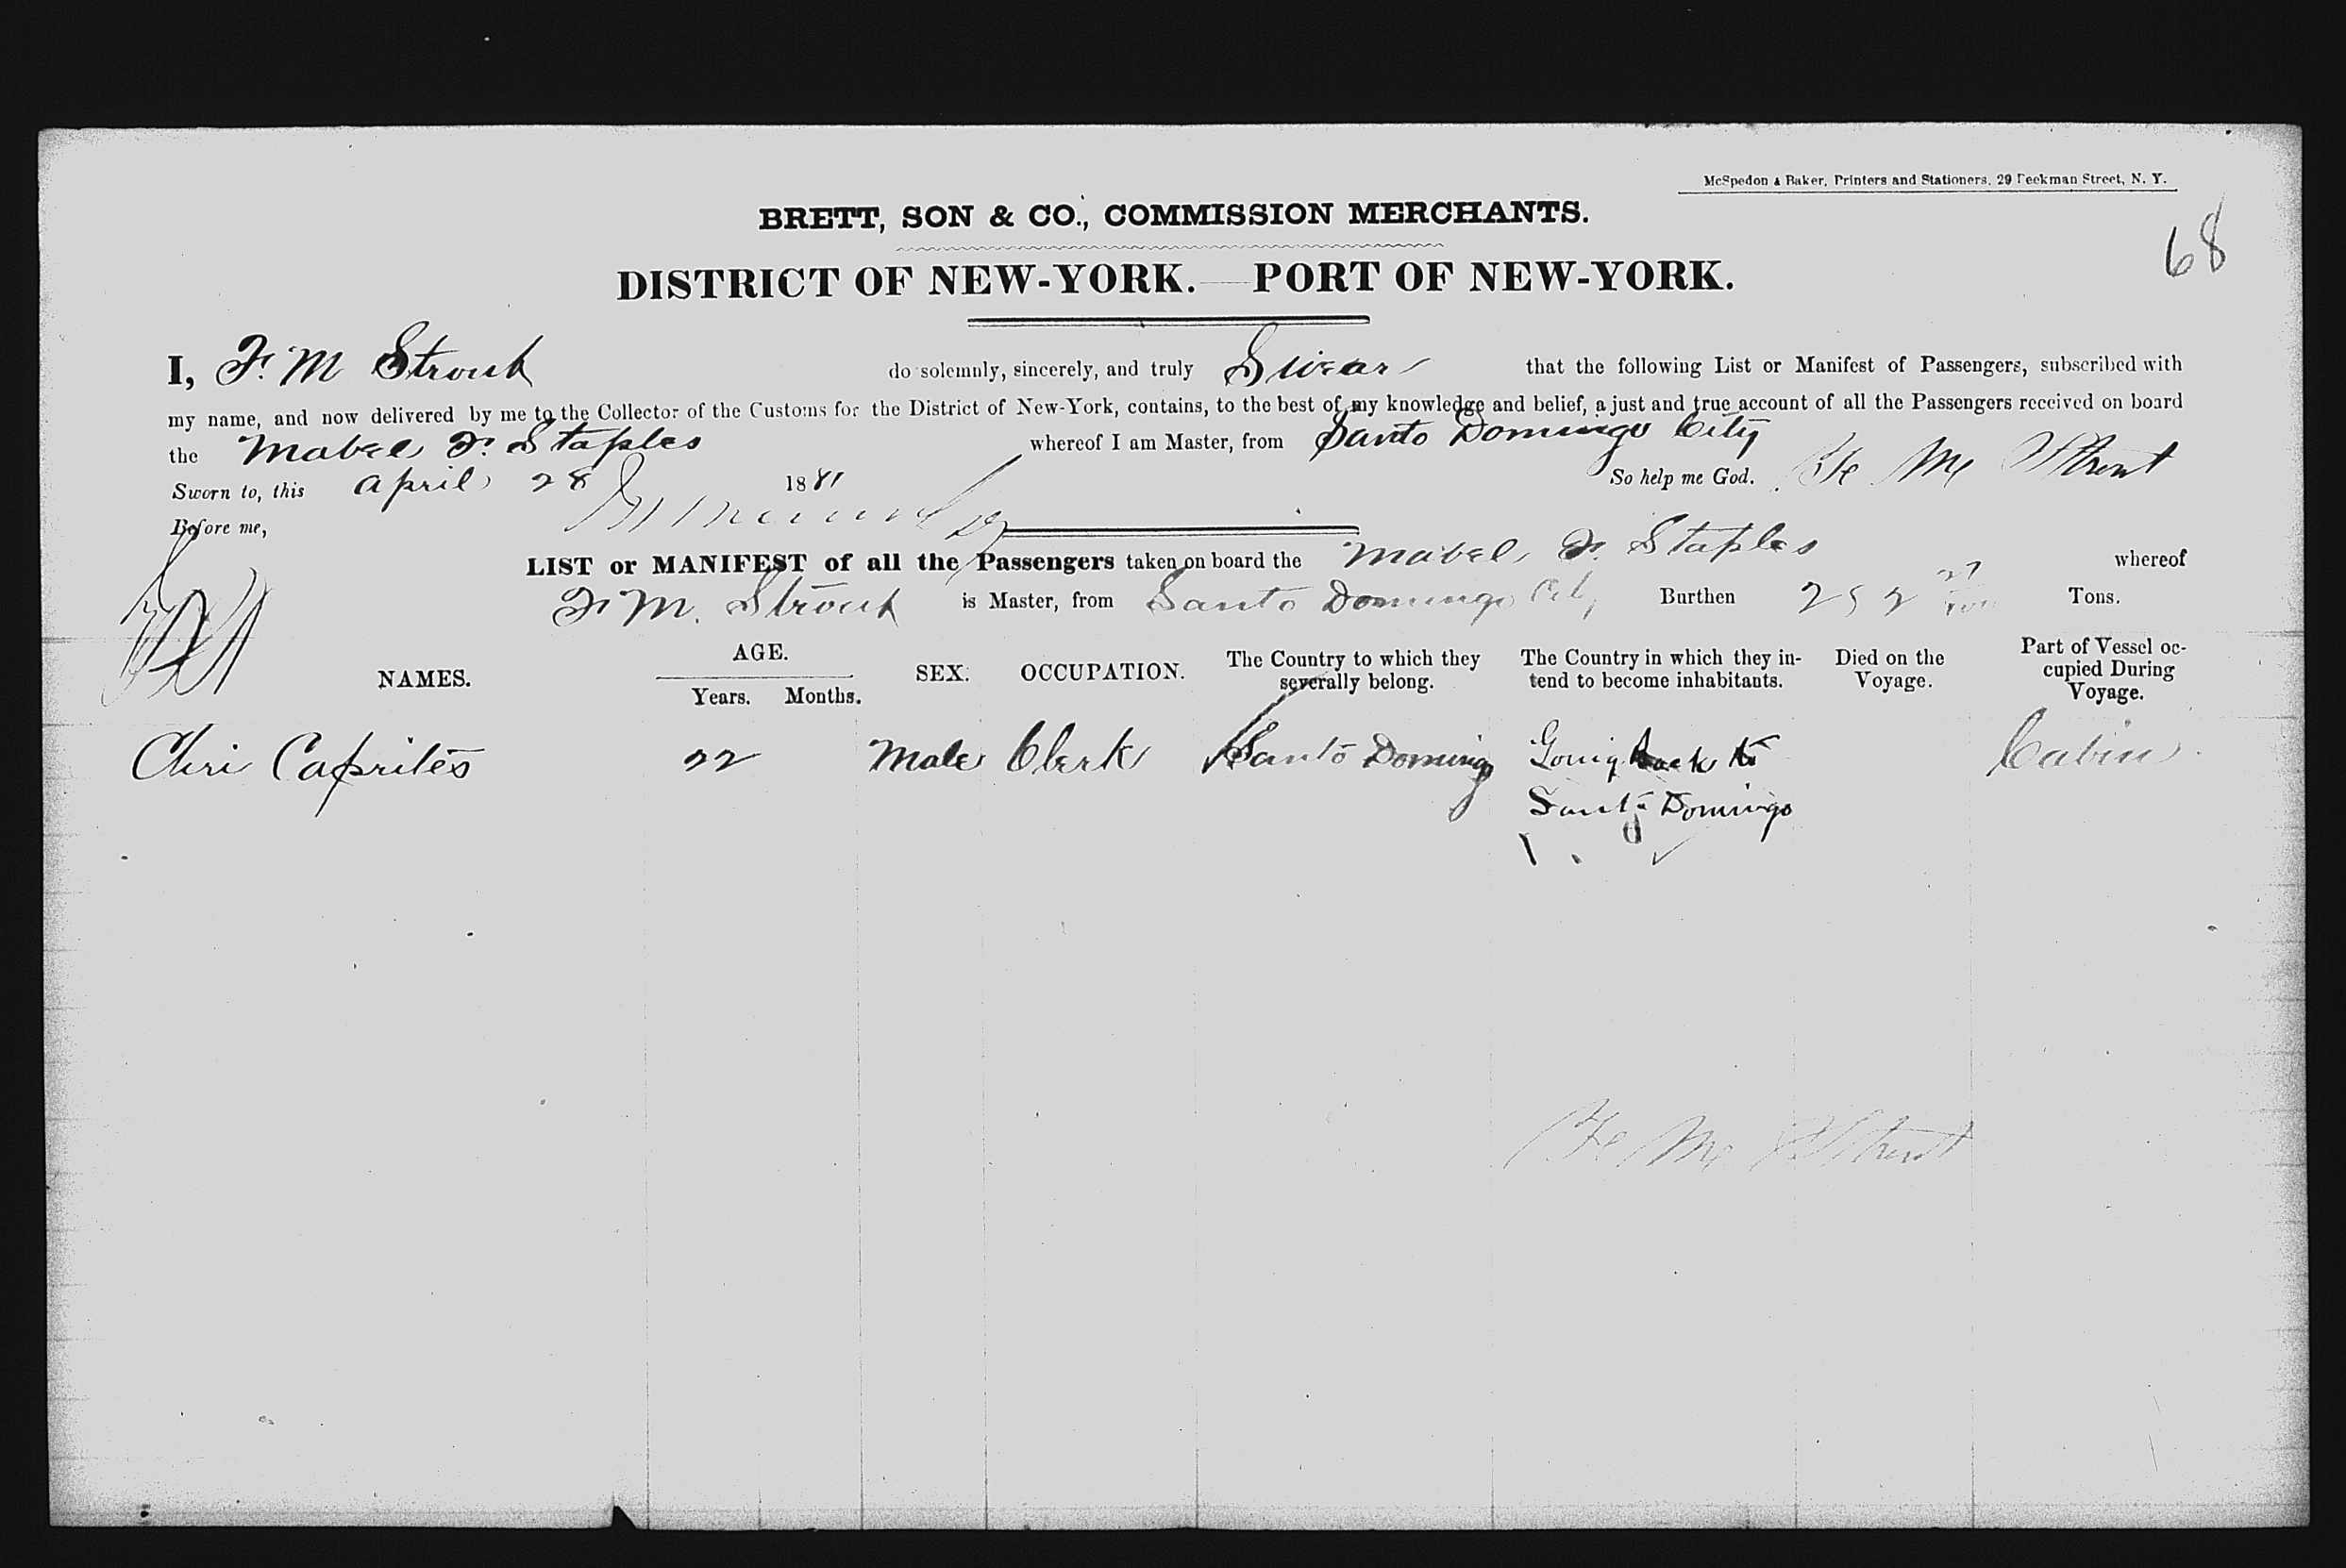 McSpedon & Baker, Printers and Stationers, 29 Beekman Street, N. Y.
BRETT, SON & CO., COMMISSION MERCHANTS.
68
DISTRICT OF NEW-YORK.—PORT OF NEW-YORK.
I, F. M Strout do solemnly, sincerely, and truly Swear that the following List or Manifest of Passengers, subscribed with
my name, and now delivered by me to the Collector of the Customs for the District of New-York, contains, to the best of my knowledge and belief, a just and true account of all the Passengers received on board
the Mabel F. Staples whereof I am Master, from Santo Domingo City
Sworn to, this April 28 1881 So help me God. F M Strout
Before me,
LIST or MANIFEST of all the Passengers taken on board the Mabel F. Staples whereof
F M. Strout is Master, from Santo Domingo City Burthen Tons.
NAMES. AGE. Years. Months. SEX. OCCUPATION. The Country to which they severally belong. The Country in which they intend to become inhabitants. Died on the Voyage. Part of Vessel occupied During Voyage.
Caprites 22 Male Clerk Santo Domingo Going back to Cabin
Santo Domingo
F M Strout